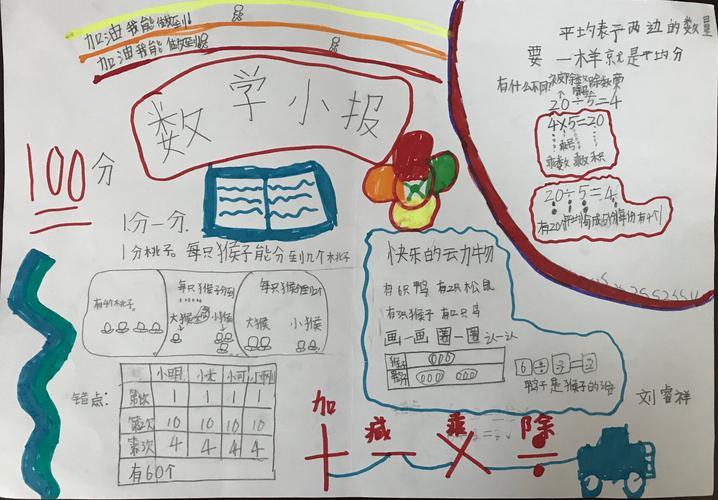 加油我能做到!
加油我能做到!
数学小报
100分
平均表示两边的数量
要一样就是平均分
有什么不同?
20÷5=4
4×5=20
乘号
乘数 乘数 积
20÷5=4
1.分一分.
1分桃子。每只猴子能分到几个桃子
有4个桃子.
每只猴子分到
大猴 小猴
每只猴分到2个
大猴 小猴
快乐的动物
有6只鸭 有2只松鼠
有3只猴子 有2只鸟
画一画 圈一圈 认一认
猴子
鸭子
6÷3=2
鸭子是猴子的2倍
错点:
小明 小光 小可 小刚
第次 1 1 1 1
第次 10 10 10 10
第次 4 4 4 4
有60个
加 减 乘 除
+ － × ÷
刘睿祥